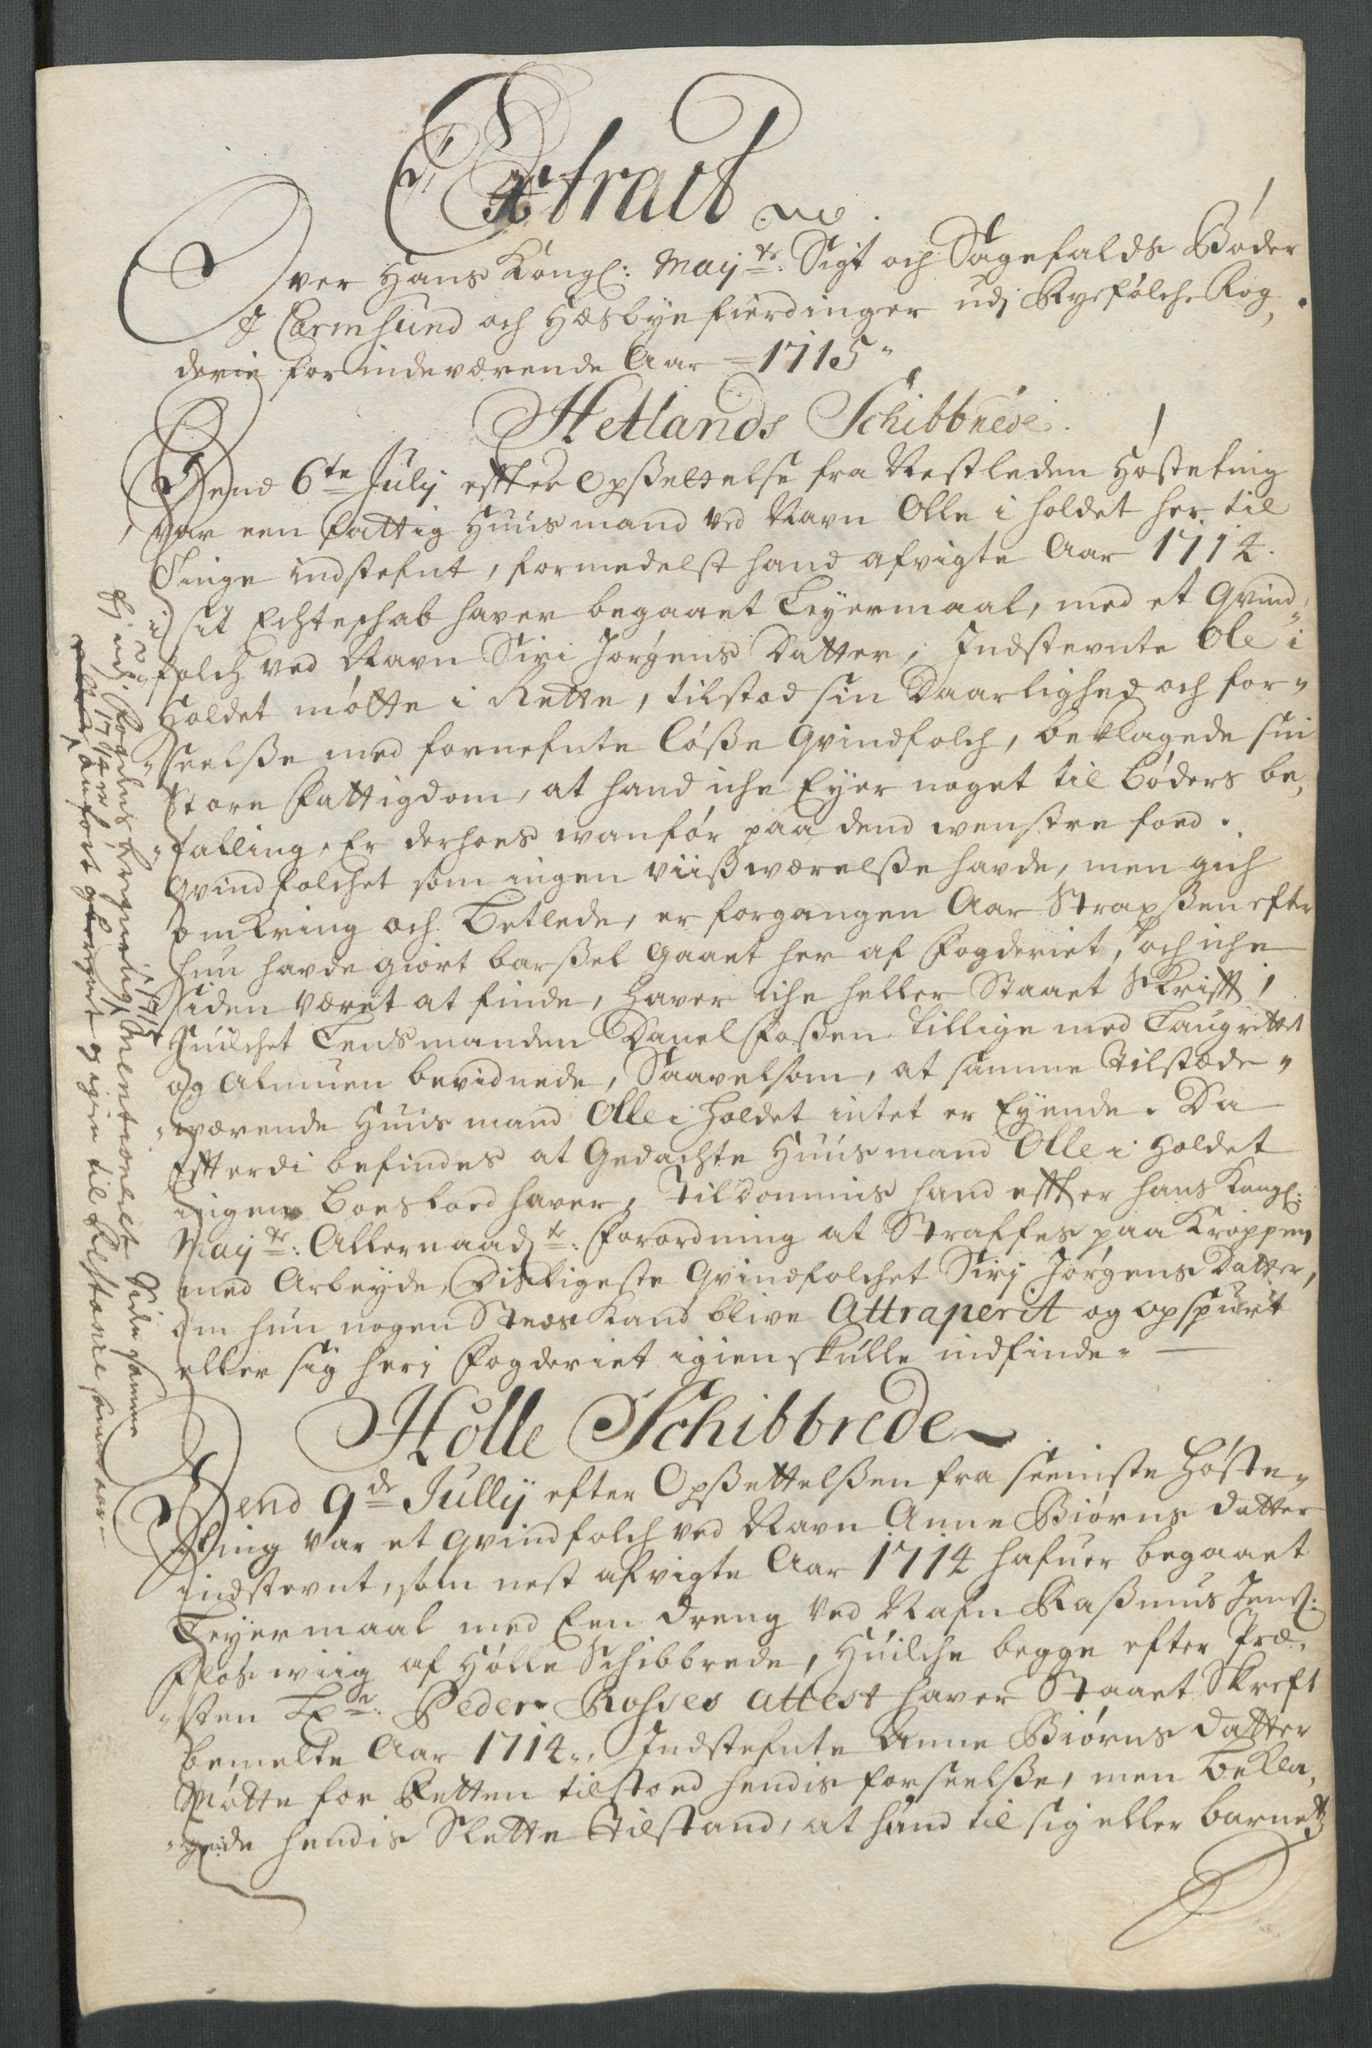 Extract
Over Hans Kongl: May:te Sigt och Sagefalds Bøder
J Carmsund och Hæsbye fierdinger udj Ryefølche Fog,
derie for indeværende Aar 1715
Hetlands Schibbrede.
Dend 6te July effter Opsettelse fra Nestleden Høsteting
var een fattig Huusmand ved Navn Olle i holdet her til
Tinge indstefnt, formedelst hand afvigte Aar 1714.
i sit Echteschab haver begaaet Leyermaal, med et Qvind,
folch ved Navn Siri Jørgens Datter, Indstevnte Ole i
Holdet møtte i Rette, tilstod sin Daarlighed och for-
seelsse med fornefnte løsse Qvindfolch, beklagede sin
store Fattigdom, at hand iche Eyer noget til Bøders be,
talling, Er derhoes wanfør paa dend wenstre foed.
Qvindfolchet som ingen viisswærelsse havde, men gich
omkring och Betlede, er forgangen Aar Strax efter
hun havde giort barssel gaaet her af Fogderiet, och iche
siden været at finde, haver iche heller Staaet Skrifft,
Huilchet Lensmanden Danel Fossen tillige med Laugrettet
og Almuen bevidnede, Saavelsom, at samme tilstæde-
værende Huusmand Olle i Holdet intet er Eyende. Da
Effterdi befindes at Gedachte Huusmand Olle i Holdet
ingen Boeslod haver, Tildømmis hand effter hans Kongl:
May:te: Allernaad:te: Forordning at Straffes paa Kroppen
med Arbeyde, Disligeste Qvindfolchet Sirj Jørgens Datter,
om hun nogen Stæds Kand blive Attraperit og opspurt
eller sig her j Fogderiet igien skulle indfinde.
Hølle Schibbrede
Dend 9de Jullij efter Opssettelssen fra seeniste Høste-
ting var et qvindfolch ved Navn Anne Biørns datter
indstevnt, som nest afvigte Aar 1714 hafuer begaaet
Leyermaal med Een dreng ved Nafn Rassmus Jens:
Fløs wiig af Hølle Schibbrede, Huilche begge efter Præ-
sten Hr: Peder Rosses attest haver Staaet Skreft
bemelte Aar 1714. Indstefnte Anne Biørns datter
Møtte for Retten tilstoed hendis forseelsse, men Bekla,
gede hendis Slette tilstand, at hand til sig eller barnet